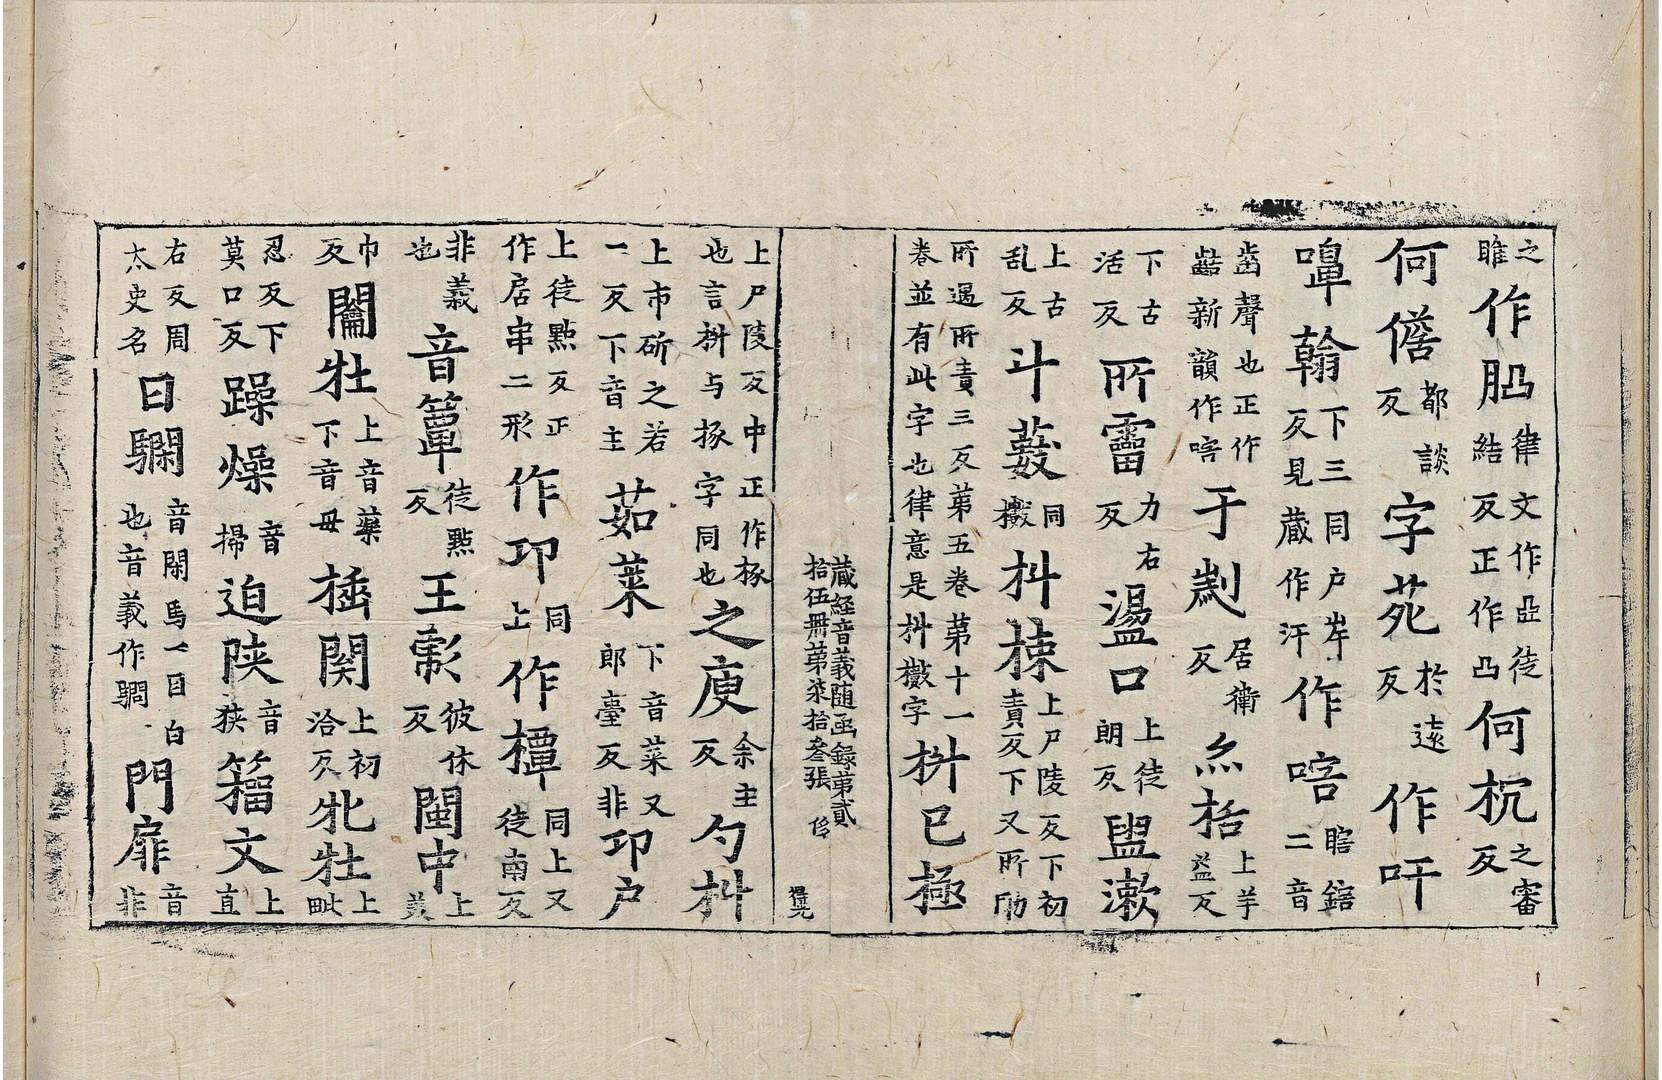 之睢作凸律文作亞徒結反正作凸何枕之審反
何儋都談反字苑於遠反作吁
嘷翰下三同户岸反見藏作汗作喀二音瞎鎋
齒聲也正作齰新韻作喀于㓨居衛反糸栝上羊益反
下古活反所霤力右反盪口上徒朗反盥漱
上古乱反斗藪同擻枓栜上尸陵反下初責反下又所助
所遇所責三反第五卷第十一卷並有此字也律意是枓擻字枡已極
藏経音義随函録第貳拾伍冊第柒拾叁張 俻
上尸陵反中正作椓也言枡与椓字同也之庾余主反勺枓
上市斫之若一反下音主茹菜下音菜又郎臺反非卭户
上徒點反正作居串二形作卭同上作橝同上又徒南反
非義也音簟徒點反王彪彼休反閩中上美
巾反闔牡上音藥下音毋插関上初洽反牝牡上毗
忍反下莫口反躁燥音掃迫陕音狭籀文上直
右反周太史名曰騆音閑馬一目白也音義作騆門扉音非